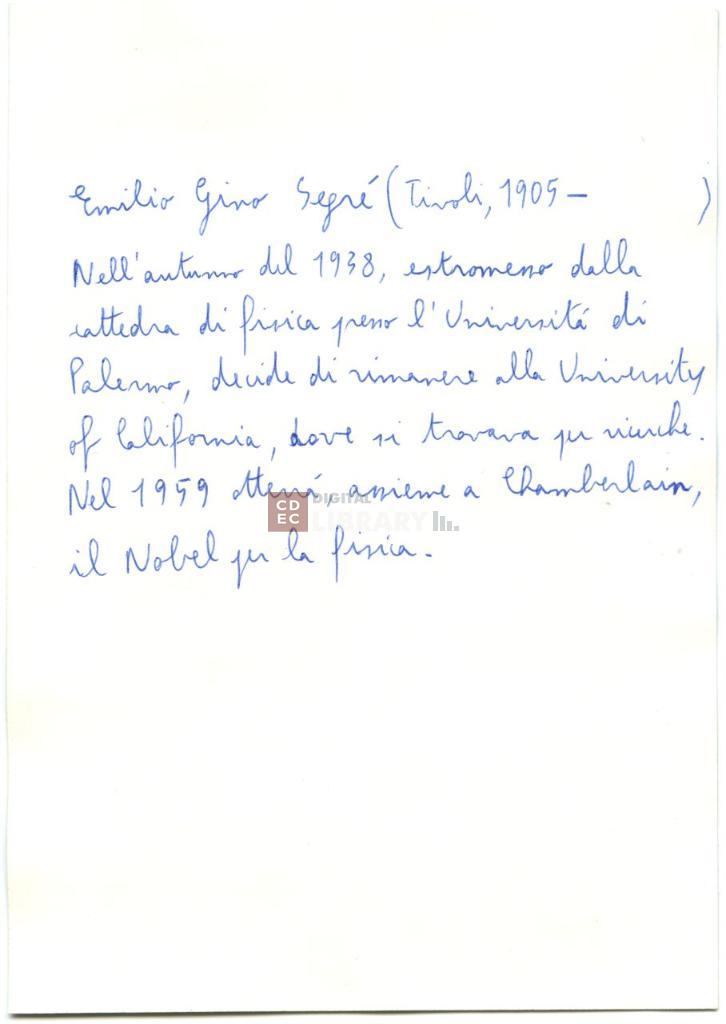 Emilio Gino Segré (Tivoli, 1905 – )
Nell'autunno del 1938, estromesso dalla
cattedra di fisica presso l'Universitá di
Palermo, decide di rimanere alla University
of California, dove si trovava per ricerche.
Nel 1959 otterrá, assieme a Chamberlain,
il Nobel per la fisica.
CDEC DIGITAL LIBRARY